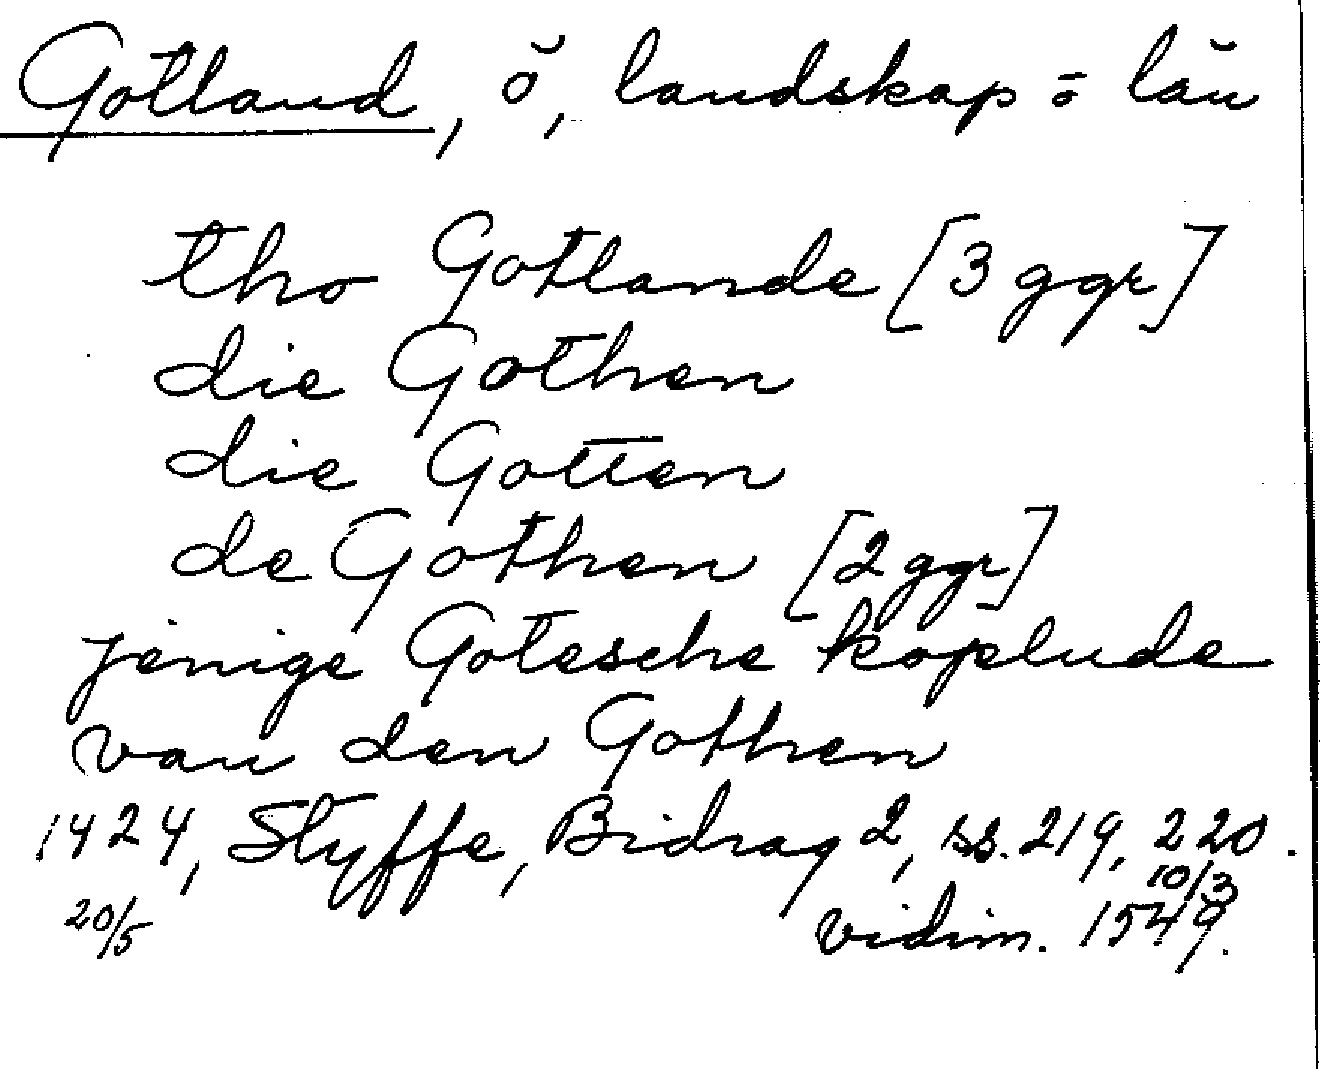 Gotland, ö, landskap = län
tho Gotlande [3 ggr]
die Gothen
die Gotten
de Gothen [2 ggr]
jenige Gotesche koplude
van den Gothen
1424, Styffe, Bidrag 2, ss. 219, 220.
20/5 vidim. 10/3 1549.